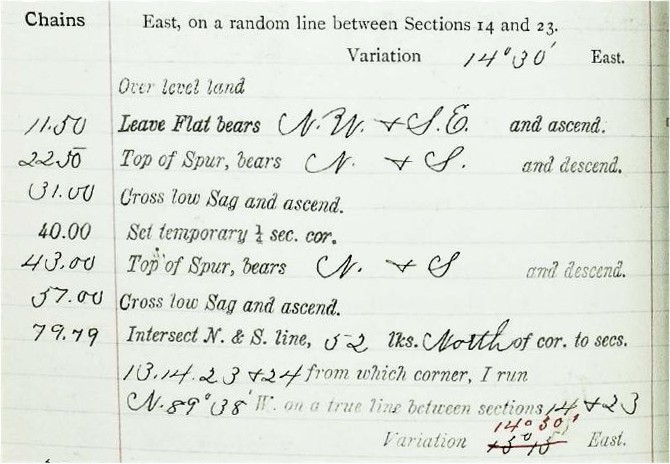 Chains East, on a random line between Sections 14 and 23.
Variation 14° 30' East.
Over level land
11.50 Leave Flat bears N.W. & S.E. and ascend.
22.50 Top of Spur, bears N. & S. and descend.
31.00 Cross low Sag and ascend.
40.00 Set temporary ¼ sec. cor.
43.00 Top of Spur, bears N. & S and descend.
57.00 Cross low Sag and ascend.
79.79 Intersect N. & S. line, 52 lks. North of cor. to secs.
13.14.23 & 24 from which corner, I run
N. 89° 38' W. on a true line between sections 14 & 23
14° 30'
Variation 15° 15' East.